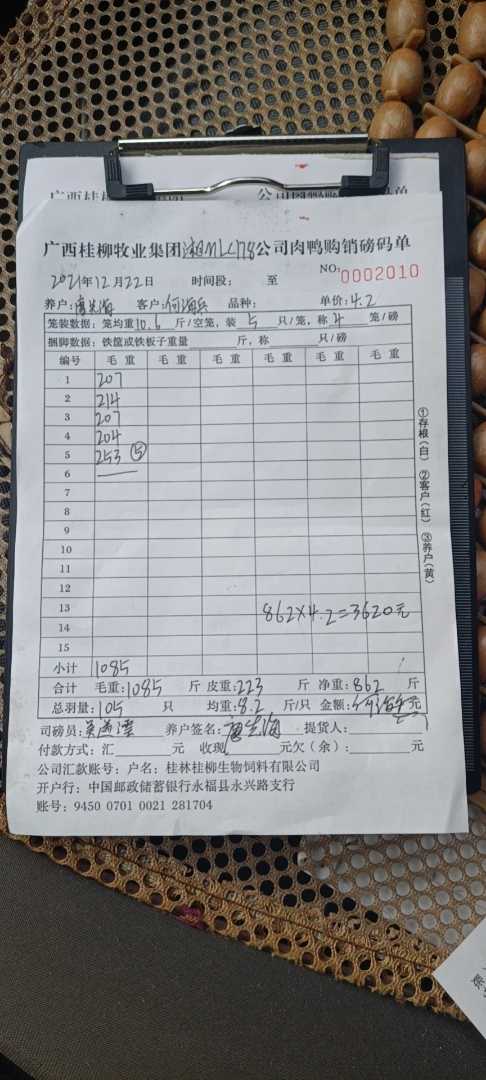 广西桂柳
公司肉鸭购
码单
广西桂柳牧业集团湘MLC178公司肉鸭购销磅码单
2021年12月22日 时间段: 至 NO.0002010
养户: 客户:何海兵 品种: 单价:4.2
笼装数据:笼均重10.6斤/空笼,装5只/笼,称4笼/磅
捆脚数据:铁筐或铁板子重量 斤,称 只/磅
编号 毛重 毛重 毛重 毛重 毛重 毛重
1 207
2 214
3 207
4 204
5 253 ⑤
6
7
8
9
10
11
12
13 862×4.2=3620元
14
15
小计 1085
合计 毛重:1085 斤 皮重:223 斤 净重:862 斤
总羽量:105 只 均重:8.2 斤/只 金额: 元
司磅员: 养户签名: 提货人:
付款方式:汇 元 收现 元欠(余): 元
公司汇款账号:户名:桂林桂柳生物饲料有限公司
开户行:中国邮政储蓄银行永福县永兴路支行
账号:9450 0701 0021 281704
①存根(白) ②客户(红) ③养户(黄)